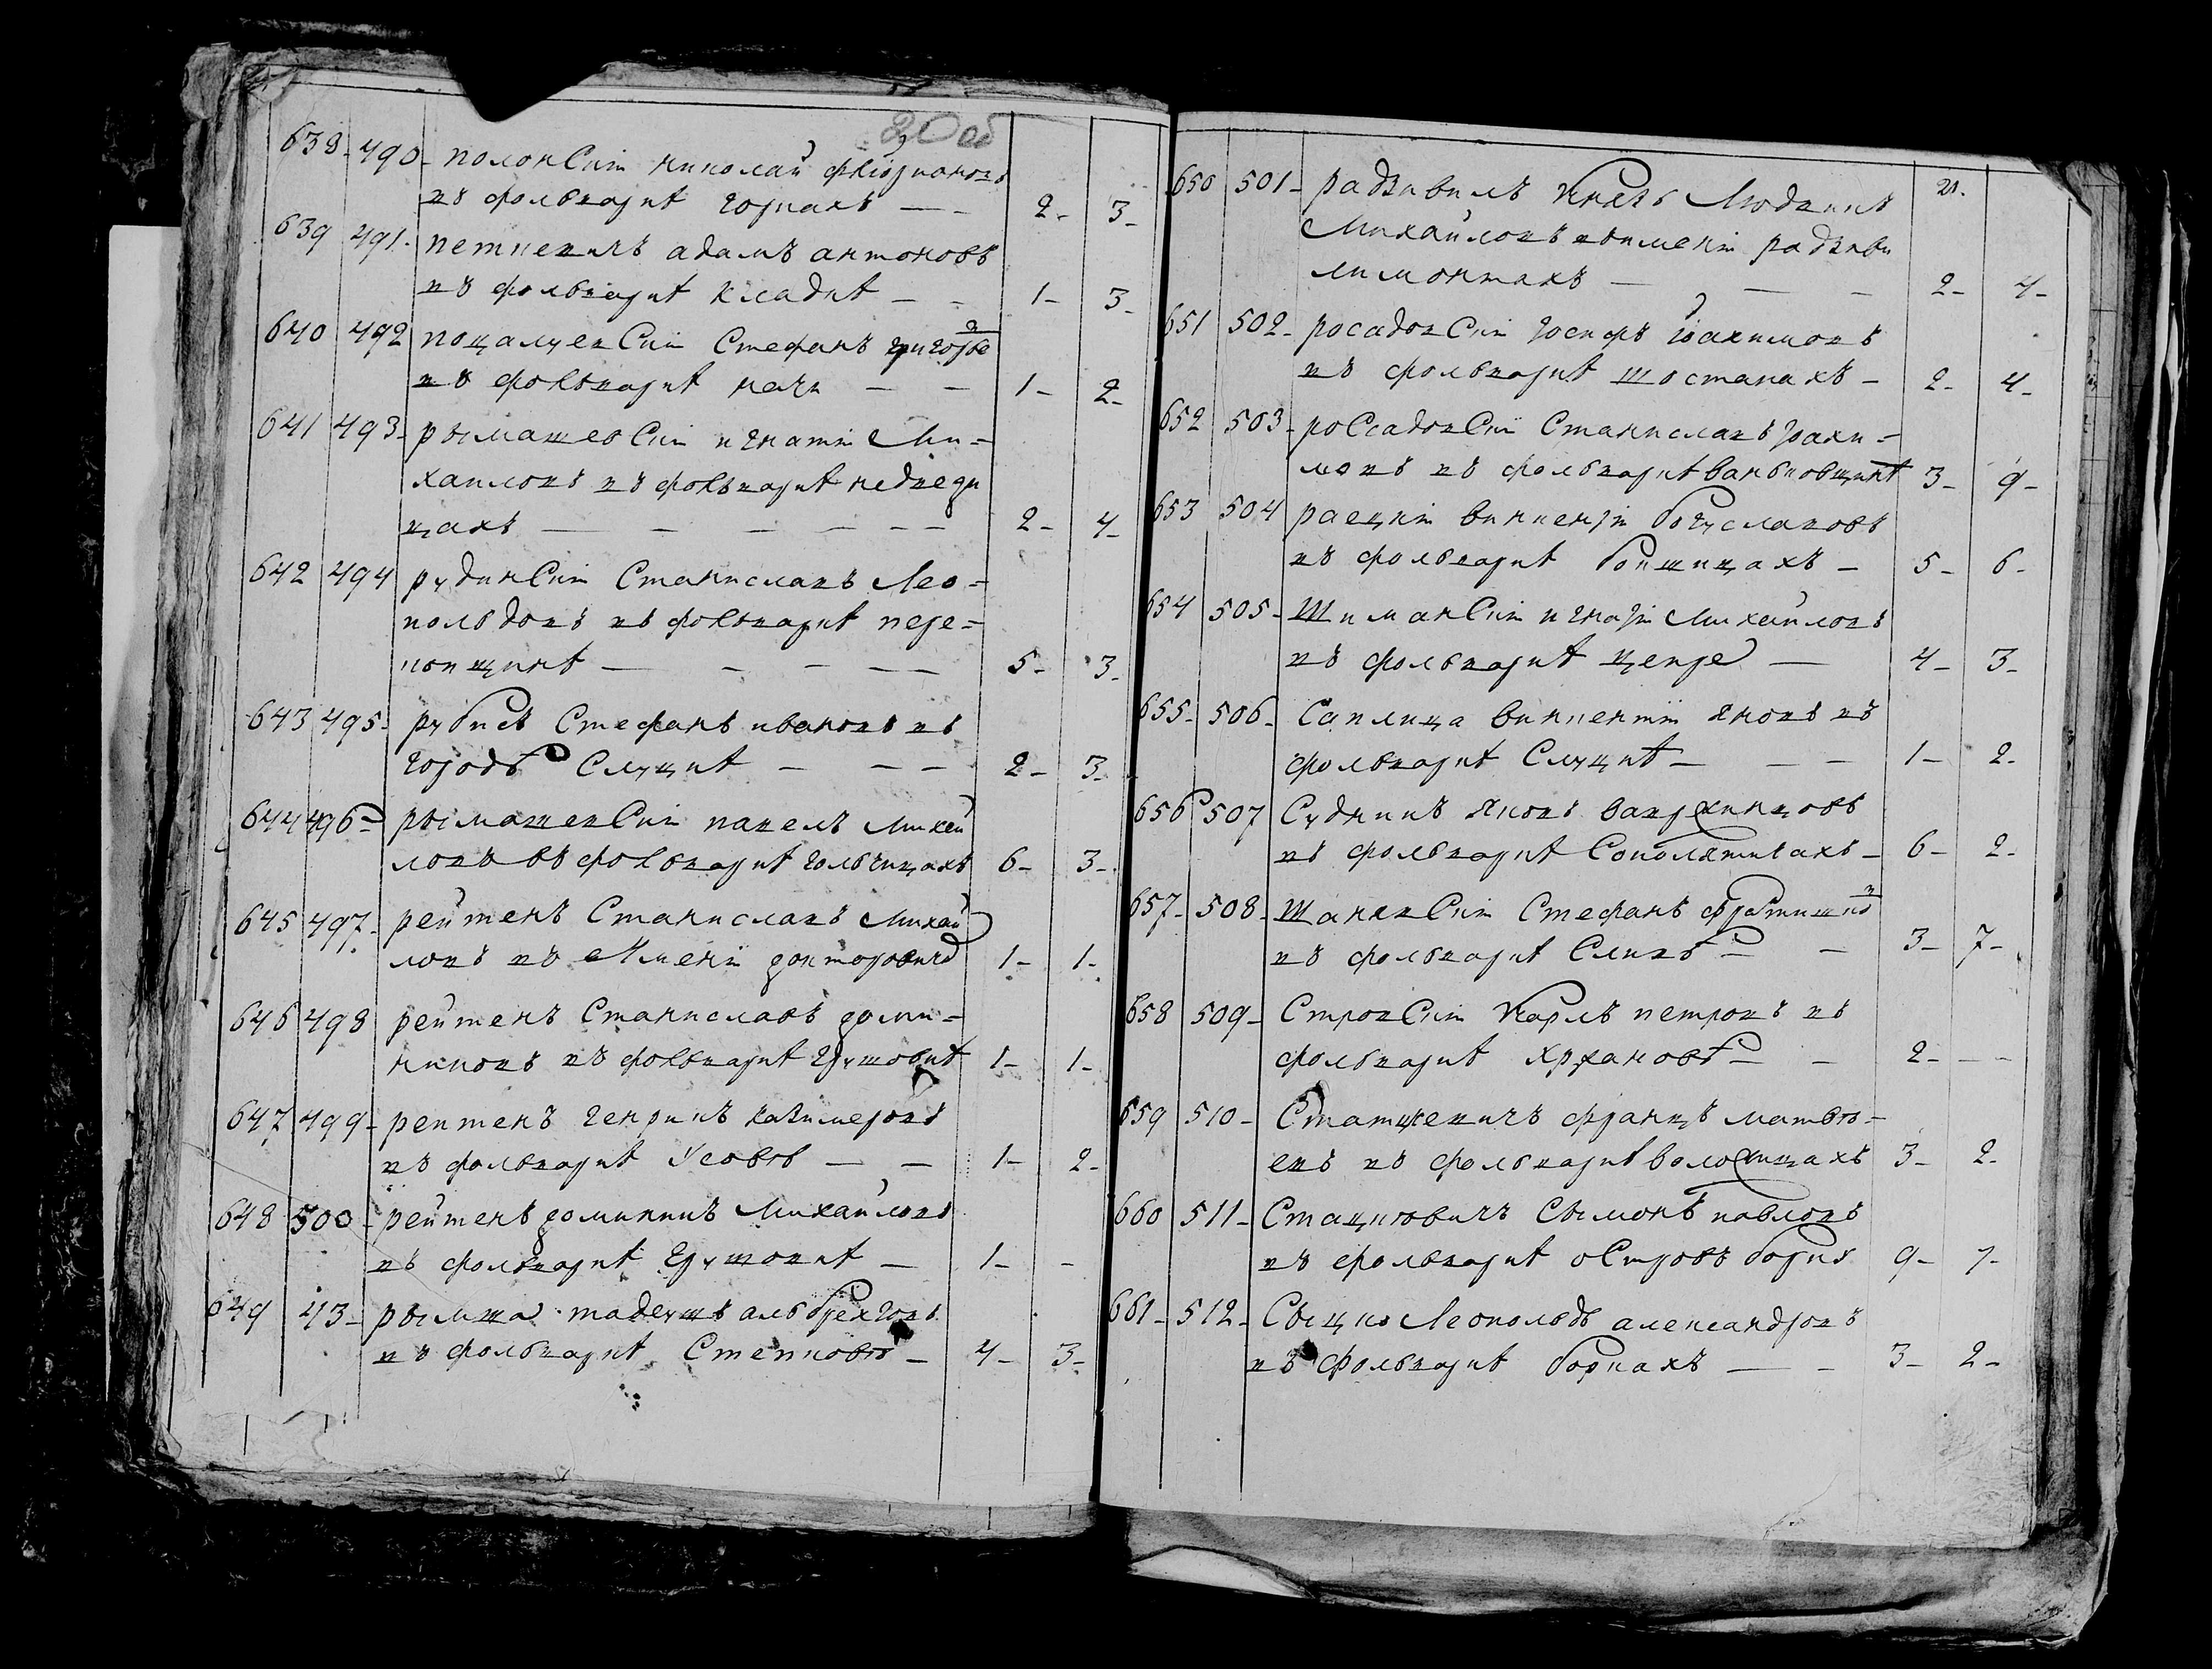 20 об
638 - 490 - полонскiи николаи флорiанов
въ фольваркѣ горкахъ — — 2 - 3 -
639 491 - петкевичъ адамъ антоновъ
въ фольваркѣ кладкѣ — — 1 - 3 -
640 492 поцалуевскiи Стефанъ григорьев
въ фольваркѣ начи — — 1 - 2 -
641 493 - рымашевскiи игнатiи Ми-
хаиловъ въ фольваркѣ недведи
цахъ — — — — — 2 - 4 -
642 494 рудинскiи Станиславъ Лео-
польдовъ въ фольваркѣ пере-
ковщинѣ — — — — 5 - 3 -
643 495 - рубисъ Стефанъ ивановъ въ
городѣ Слуцкѣ — — — 2 - 3 -
644 496 - рымашевскiи павелъ Михаи
ловъ въ фольваркѣ гольчицахъ 6 - 3 -
645 497 - рейтенъ Станиславъ Михай
ловъ въ Именiи 1 - 1 -
646 498 рейтенъ Станиславъ доми-
никовъ въ фольваркѣ грушовкѣ 1 - 1 -
647 499 - рентенъ генрикъ казимеровъ
въ фольваркѣ Усовѣ — — 1 - 2 -
648 500 - рейтенъ доминикъ Михайловъ
въ фольваркѣ грушовкѣ — 1 - -
649 43 - рымша тадеушъ альбрехтовъ
въ фольваркѣ Степковѣ — 4 - 3 -
21.
650 501 - радзивилъ Князь Людвикъ
Михайловъ въ именiи радзиви
лимонтахъ — — — 2 - 4 -
651 502 - росадовскiи Iосифъ Iоахимовъ
въ фольваркѣ шостакахъ - 2 - 4 -
652 503 - россадовскiи Станиславъ Iоахи-
мовъ въ фольваркѣ ваньковщинѣ 3 - 9 -
653 504 раецкiи викентiи богуславовъ
въ фольваркѣ бокшицахъ - 5 - 6 -
654 505 - Шиманскiи игнатiи Михайловъ
въ фольваркѣ цепре — 4 - 3 -
655 - 506 - Саплица викентiи Яковъ въ
фольваркѣ Слуцкѣ — — — 1 - 2 -
656 507 Судникъ Яковъ вавржинцовъ
въ фольваркѣ Сополятичахъ - 6 - 2 -
657 - 508 - Шанявскiи Стефанъ
въ фольваркѣ Сливѣ — — 3 - 7 -
658 509 - Стровскiи Карлъ петровъ въ
фольваркѣ хржановѣ — — 2 - —
659 510 - Статкевичъ францъ матвѣ-
евъ въ фольваркѣ 3 - 2 -
660 511 - Стацкевичъ Сымонъ павловъ
въ фольваркѣ островѣ боркѣ 9 - 7 -
661 - 512 - Сыцко Леопольдъ александровъ
въ фольваркѣ боркахъ — — 3 - 2 -